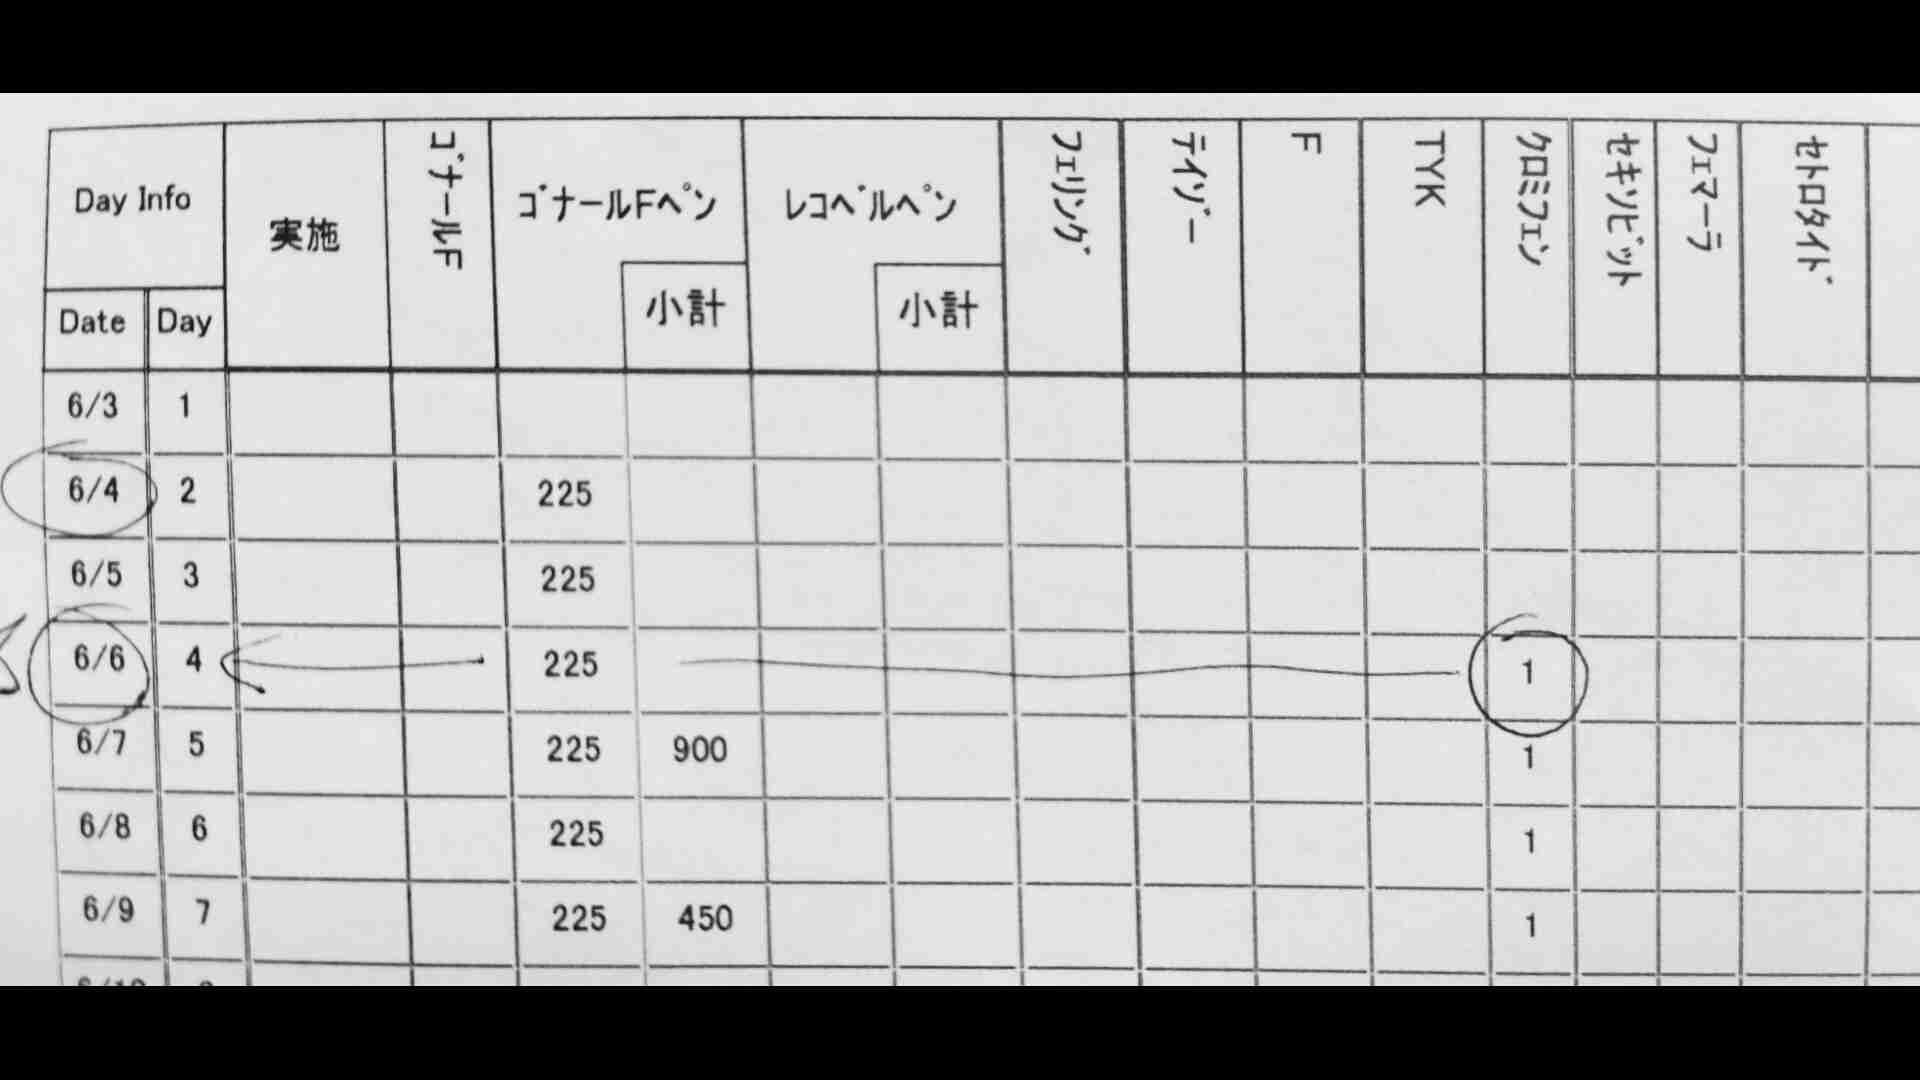 Day Info 実施 ｺﾞﾅｰﾙF ｺﾞﾅｰﾙFﾍﾟﾝ ﾚｺﾍﾞﾙﾍﾟﾝ ﾌｪﾘﾝｸﾞ ﾃｲｿﾞｰ F TYK ｸﾛﾐﾌｪﾝ ｾｷｿﾋﾞｯﾄ ﾌｪﾏｰﾗ ｾﾄﾛﾀｲﾄﾞ
小計 小計
Date Day
6/3 1
6/4 2 225
6/5 3 225
6/6 4 225 1
6/7 5 225 900 1
6/8 6 225 1
6/9 7 225 450 1